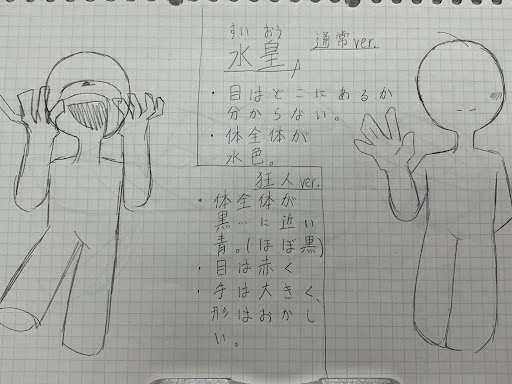 すい おう
水皇 通常ver.
・目はどこにあるか
分からない。
・体全体が
水色。
狂人ver.
・体全体が
黒…に近い
青。(ほぼ黒)
・目は赤く
・手は大きく、
形はおかし
い。